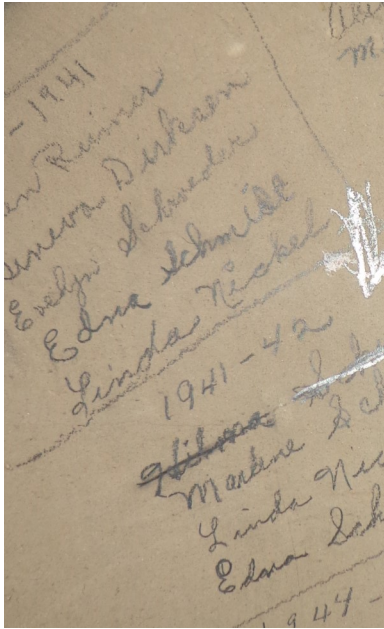 -1941
en Reimer
Geneva Dirksen
Evelyn Schroeder
Edna Schmidt
Linda Nickel
1941-42
Hilma Sch
Marlene Sch
Linda Nic
Edna Sch
1944-